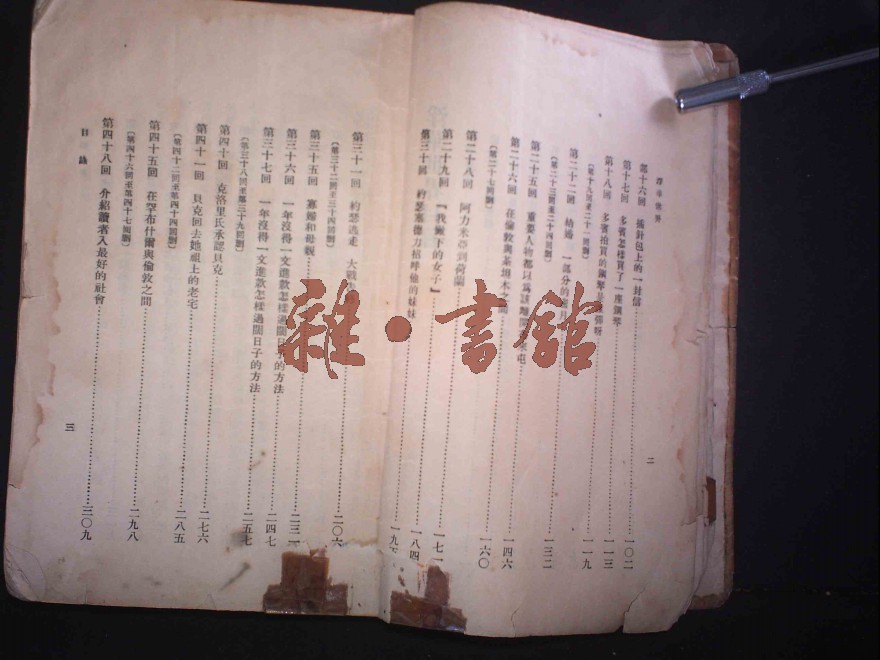 第十六回 插針包上的一封信……一〇二
第十七回 多賓怎樣買了一座鋼琴……一一三
第十八回 多賓拍買的鋼琴是 彈呀……一一九
〔第十九回至二十一回刪〕
第二十二回 結婚 一部分的蜜月……一三二
〔第二十三回至二十四回刪〕
第二十五回 重要人物都以為該離 屯……一四六
第二十六回 在倫敦與茶坦木之間……一六〇
〔第二十七回刪〕
第二十八回 阿力米亞到荷蘭……一七一
第二十九回 『我撇下的女子』……一八四
第三十回 約瑟塞德力招呼他的妹妹……一九
二
第三十一回 約瑟逃走 大戰……二〇六
〔第三十二回至三十四回刪〕
第三十五回 寡婦和母親……二三
第三十六回 一年沒得一文進款怎樣過闊日子的方法……二四七
第三十七回 一年沒得一文進款怎樣過闊日子的方法……二五七
〔第三十八回至第三十九回刪〕
第四十回 克洛里氏承認貝克……二七六
第四十一回 貝克回去她祖上的老宅……二八五
〔第四十二回至第四十四回刪〕
第四十五回 在罕布什爾與倫敦之間……二九八
〔第四十六回至第四十七回刪〕
第四十八回 介紹讀者入最好的社會……三〇九
目錄
三
雜·書館